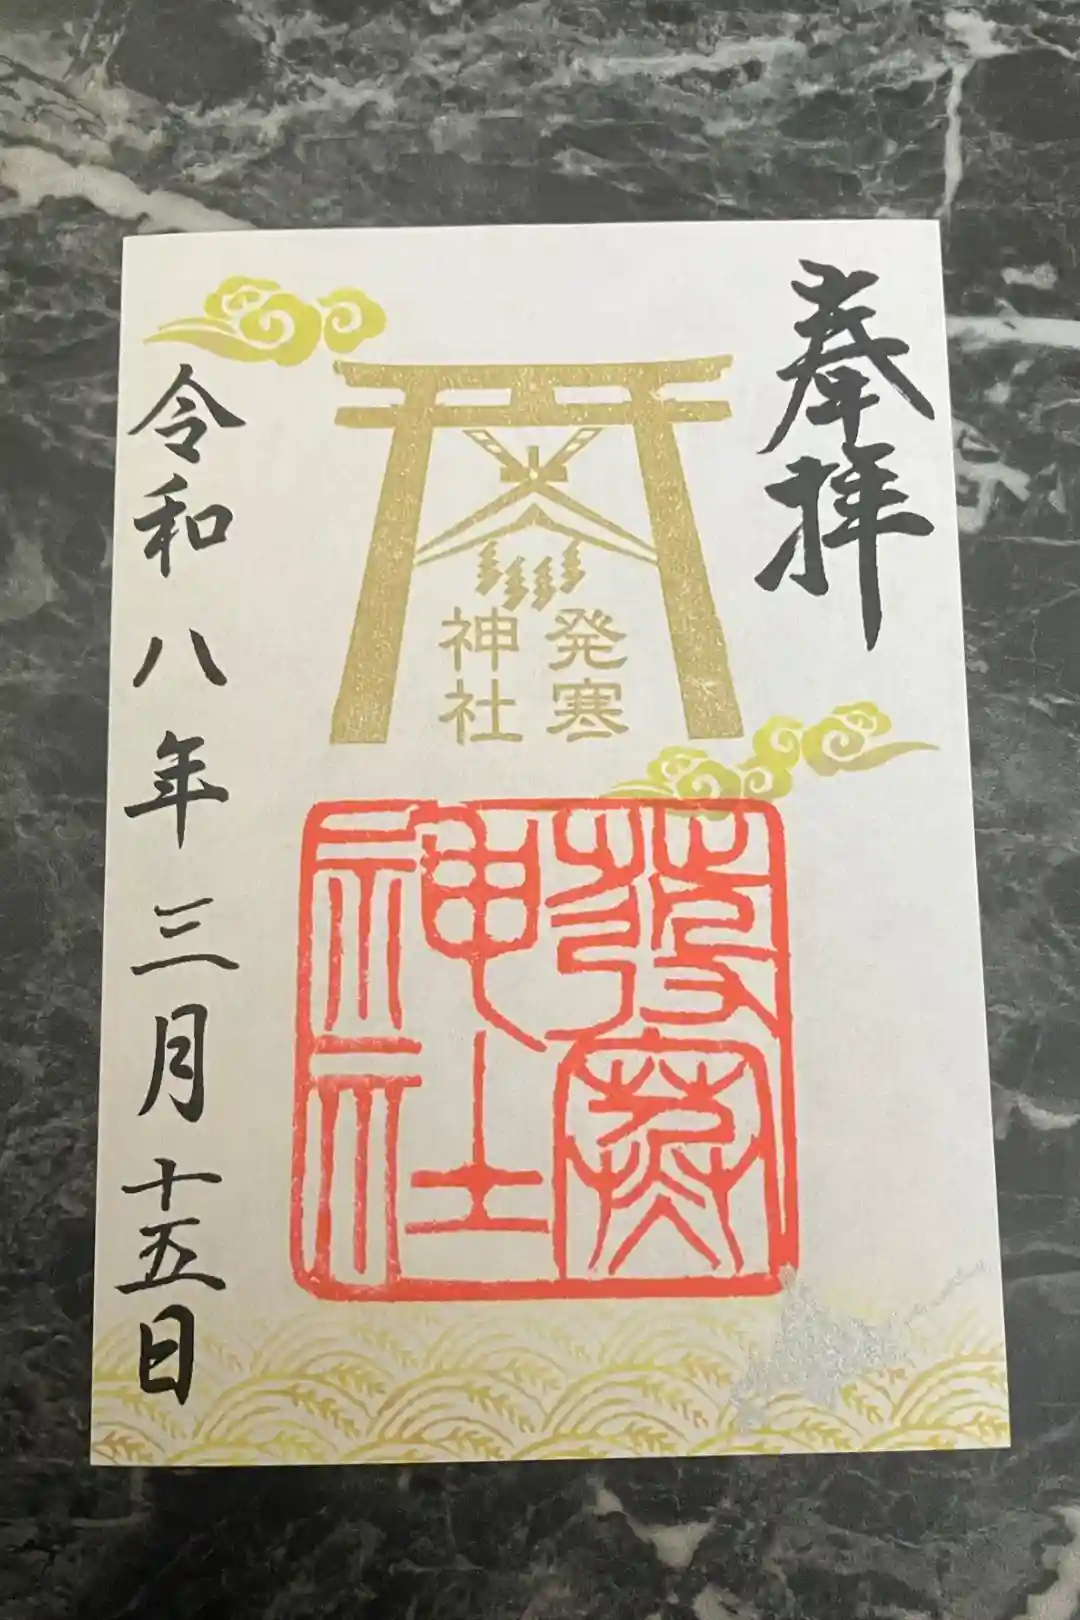 奉拝
発寒
神社
發寒
神社
令和八年三月十五日